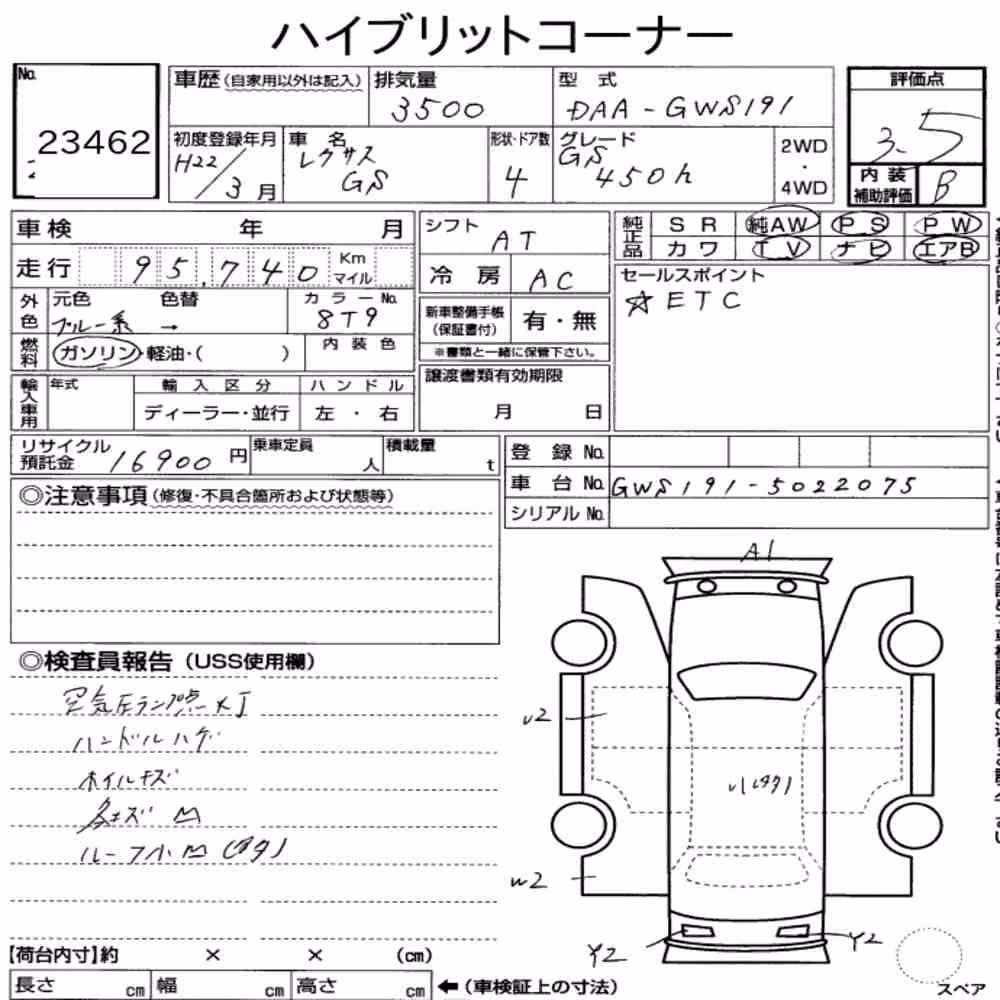 ハイブリットコーナー
No. 23462
車歴(自家用以外は記入) 排気量 3500 型 式 DAA-GWS191 評価点 3.5
初度登録年月 H22/3月 車 名 レクサス GS 形状・ドア数 4 グレード GS 450h 2WD・4WD 内装補助評価 B
車検 年 月
走行 95,740 Km マイル
外色 元色 ブルー系 → 色替 カラーNo. 8T9
燃料 ガソリン・軽油・( ) 内装色
輸入車用 年式 輸入区分 ディーラー・並行 ハンドル 左・右
シフト AT
冷房 AC
新車整備手帳(保証書付) 有・無
※書類と一緒に保管下さい。
譲渡書類有効期限
月 日
純正品 SR 純AW PS PW
カワ TV ナビ エアB
セールスポイント
☆ETC
リサイクル預託金 16900 円 乗車定員 人 積載量 t
登録No.
車台No. GWS191-5022075
シリアルNo.
◎注意事項(修復・不具合箇所および状態等)
◎検査員報告(USS使用欄)
空気圧ランプ点灯
ハンドルハゲ
ホイルキズ
ルーフ小凹
A1
U2
W2
Y2
Y2
スペア
【荷台内寸】約 × × (cm)
長さ cm 幅 cm 高さ cm ←(車検証上の寸法)